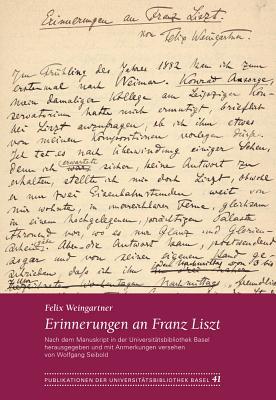 Erinnerungen an Franz Liszt.
von Felix Weingartner.
Im Frühling des Jahres 1882 kam ich zum
erstenmal nach Weimar. Konrad Ansorge,
mein damaliger Kollege am Leipziger Kon-
servatorium hatte mich ermutigt, brieflich
bei Liszt anzufragen, ob ich ihm etwas
von meinen Kompositionen vorlegen dürfe.
Ich tat es nach Überwindung einiger Scheu,
denn ich erwartete sicher keine Antwort zu
erhalten, stellte ich mir doch Liszt, obwohl
er nur zwei Eisenbahnstunden weit von
mir wohnte, in unerreichbarer Ferne, gleichsam
in einem hochgelegenen, prächtigen Palaste
thronend vor, wo es nur Glanz und Glorien-
Aber die Antwort kam, postwendend
sogar und von seiner eigenen Hand ge-
schrieben, dass ich ihn
Nachmittags, freundlich
Felix Weingartner
Erinnerungen an Franz Liszt
Nach dem Manuskript in der Universitätsbibliothek Basel
herausgegeben und mit Anmerkungen versehen
von Wolfgang Seibold
PUBLIKATIONEN DER UNIVERSITÄTSBIBLIOTHEK BASEL 41